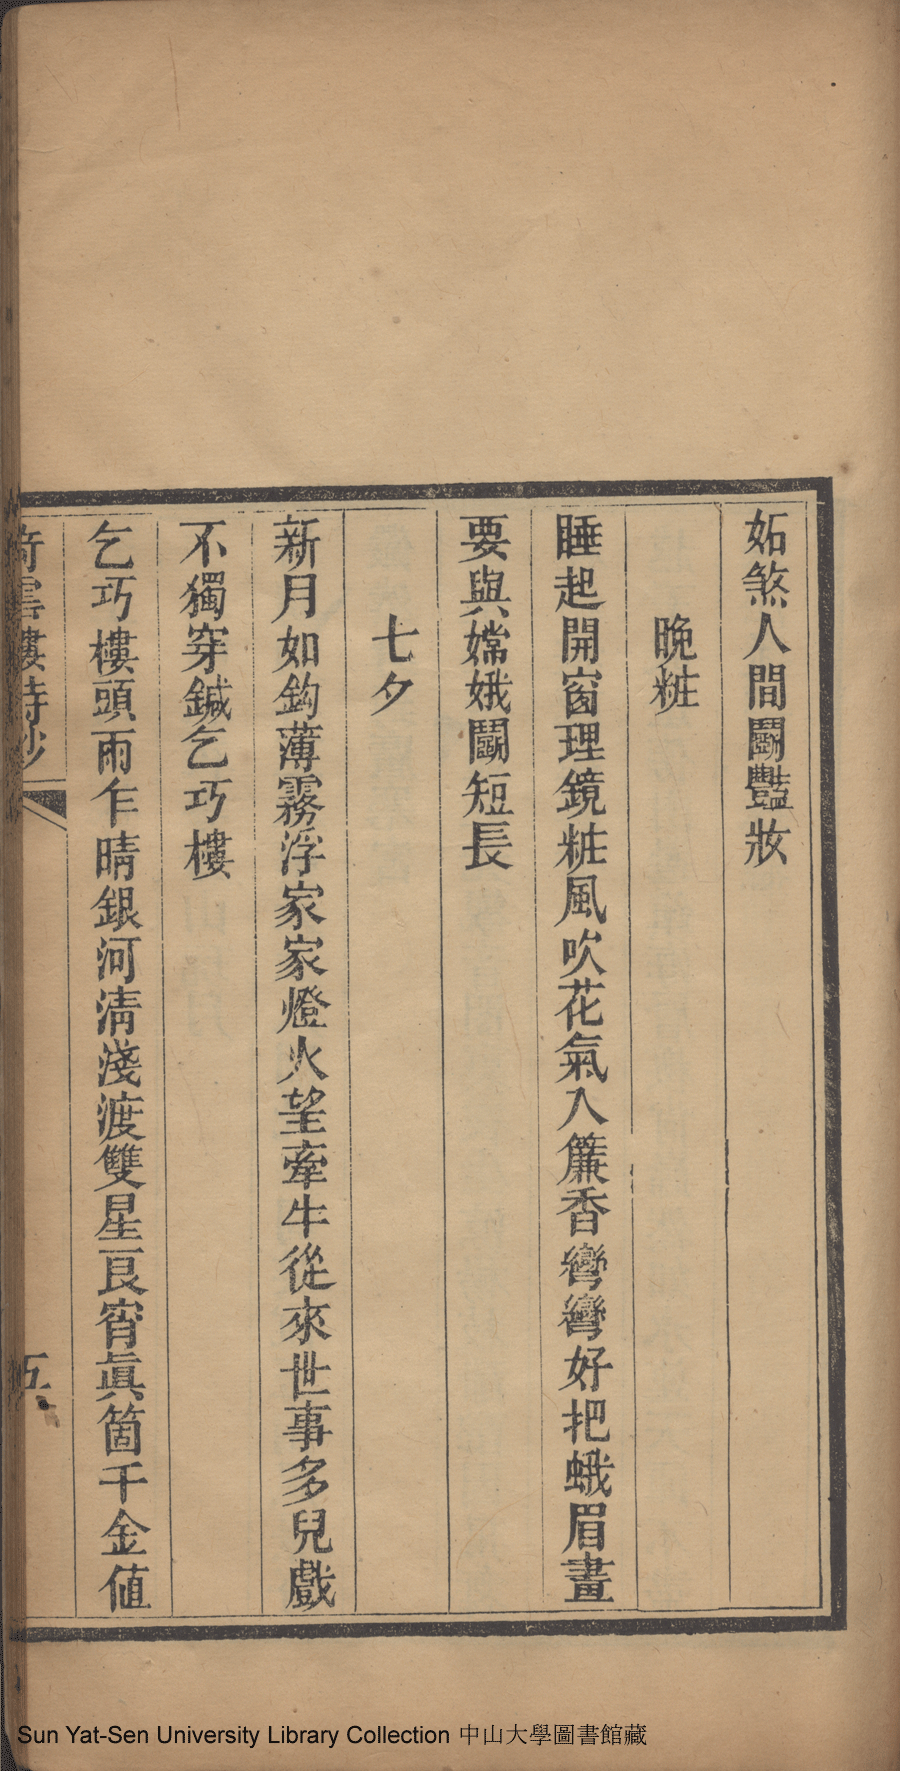 妬煞人間鬭豔妝
晚粧
睡起開窗理鏡粧風吹花氣入簾香彎彎好把蛾眉畫
要與嫦娥鬭短長
七夕
新月如鈎薄霧浮家家燈火望牽牛從來世事多兒戲
不獨穿鍼乞巧樓
乞巧樓頭雨乍晴銀河清淺渡雙星良宵眞箇千金值
倚雲樓詩鈔
五
Sun Yat-Sen University Library Collection 中山大學圖書館藏